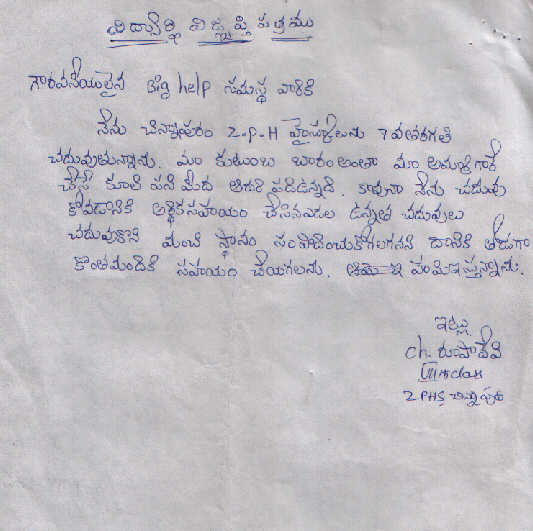 విద్యార్థి విజ్ఞప్తి పత్రము
గౌరవనీయులైన Big help సమస్థ వారికి
నేను చిన్నాపురం Z-P-H హైస్కూలును 7వతరగతి
చదువుతున్నాను. మా కుటుంబ బారం అంతా మా అమ్మగారే
చేసే కూలి పని మీద ఆదారి పడిఉన్నది. కావునా నేను చదువు
కోవడానికి ఆర్థికసహాయం చేసినఎడల ఉన్నత చదువులు
చదువుకొని మంచి స్థానం సంపాదించుకోగలగనని దానికి తోడుగా
కొంతమందికి సహాయం చేయగలను.
ఇట్లు
ch. రూపాదేవి
VII class
ZPHS చిన్నాపురం